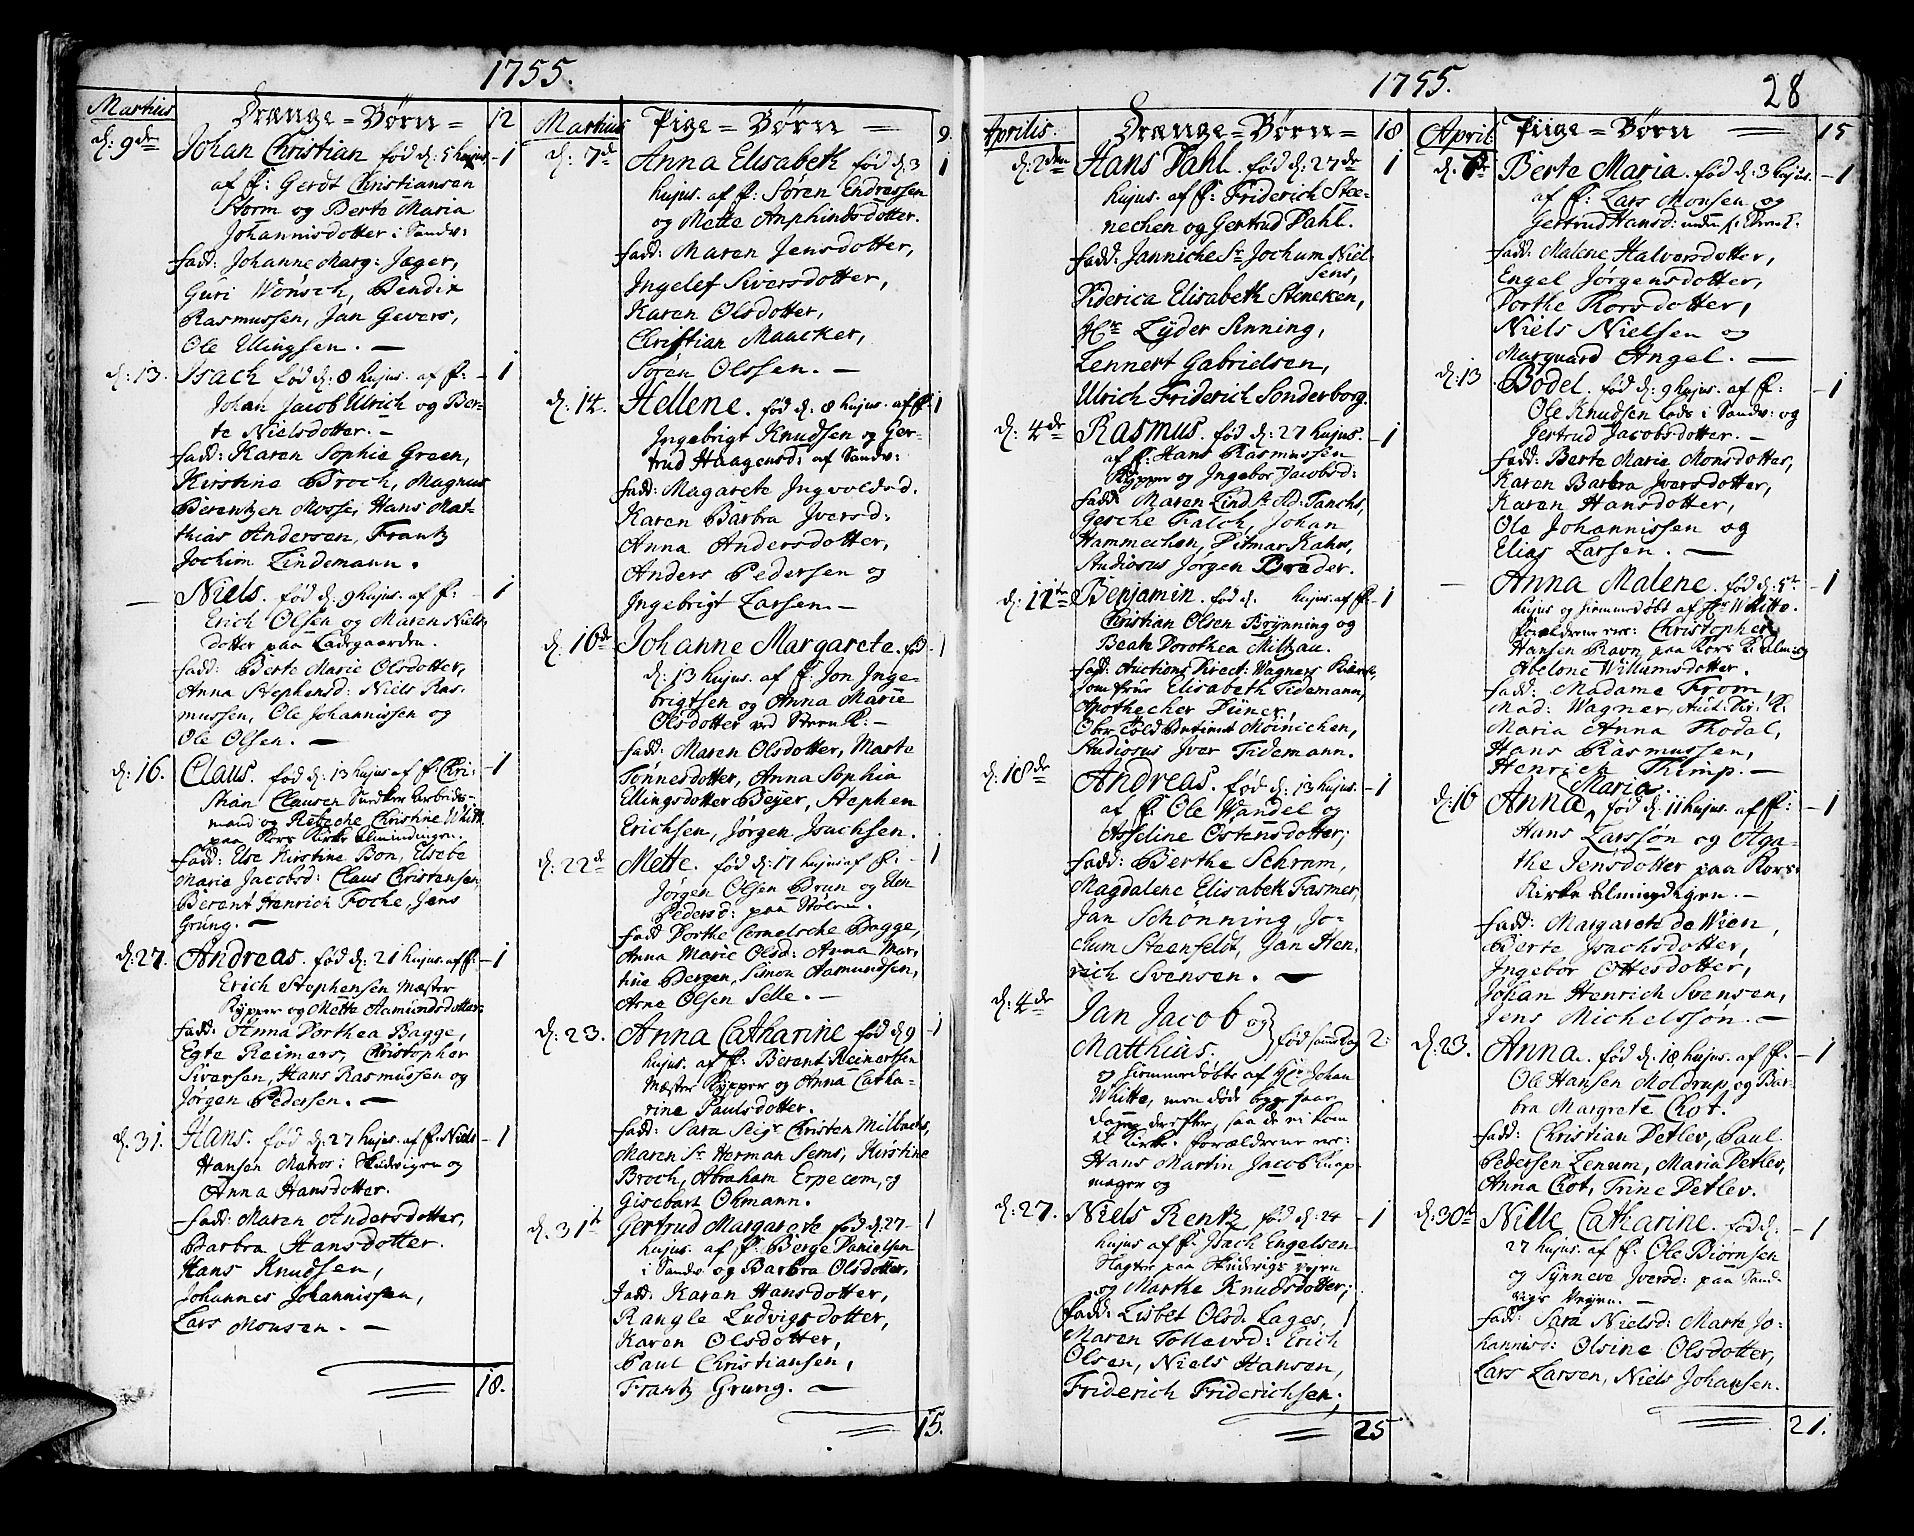 1755.
Martius
Drænge = Børn =
12
d: 9de
Johan Christian fød d: 5 hujus
1
af F: Gerdt Christiansen
Storm og Berte Maria
Johannisdotter i Sandv:
fadd: Johanne Marg: Jæger,
Guri Wønsch, Bendix
Rasmussen, Jan Gevers,
Ole Ellingsen. —
d: 13.
Isach fød d: 8 hujus. af F:
1
Johan Jacob Ulrich og Ber-
te Nielsdotter. —
fadd: Karen Sophie Green,
Kirstine Broch, Magnus
Berentzen Mosse, Hans Mat-
thias Andersen, Frantz
Jochim Lindemann.
—
Niels. fød d: 9 hujus. af F:
1
Erich Olsen og Maren Niels
dotter paa Ladegaarden.
fadd: Berte Marie Olsdotter,
Anna Stephensd: Niels Ras-
mussen, Ole Johannissen og
Ole Olsen. —
d: 16.
Claus. fød d: 13 hujus af F: Chri-
1
stian Clausen Arbeids-
mand og Christine Whitt
paa Kors Kirke Almindingen.
fadd: Else Kirstine Bon, Elsebe
Marie Jacobsd: Claus Christensen,
Berent Henrich Focke, Jens
Grung. —
d: 27.
Andreas. fød d: 21 hujus. af F:
1
Erich Stephensen Mæster
Kypper og Mette Aamundsdotter
fadd: Anna Dorthea Bagge,
Egte Reimers, Christopher
Siversen, Hans Rasmussen og
Jørgen Pedersen. —
d: 31.
Hans. fød d: 27 hujus. af F: Niels
1
Hansen Matros i Skudvigen og
Anna Hansdotter.
fadd: Maren Andersdotter,
Barbra Hansdotter.
Hans Knudsen,
Johannes Johannissen,
Lars Monsen. —
18.
Martius
Pige = Børn —
9.
d: 7de
Anna Elisabeth fød d: 3
1
hujus. af F: Søren Endressen
og Mette Anphindsdotter.
fadd: Maren Jensdotter,
Ingelef Siversdotter,
Karen Olsdotter,
Christian Maacker,
Søren Olssen. —
d: 14.
Hellene. fød d: 8 hujus. af F:
1
Ingebrigt Knudsen og Ger-
trud Haagensd: af Sandv:
fadd: Magarete Ingvoldsd.
Karen Barbra Iversd:
Anna Andersdotter,
Anders Pedersen og
Ingebrigt Larsen. —
d: 16de
Johanne Margarete. fød
1
d: 13 hujus. af F. Jon Inge-
brigtsen og Anna Marie
Olsdotter ved Stern K: —
fadd: Maren Olsdotter, Marte
Tønnesdotter, Anna Sophia
Ellingsdotter Beyer, Stephen
Erichsen, Jørgen Isachsen.
d: 22de
Mette. fød d: 17 hujus af F:
1
Jørgen Olsen Brun og
Pedersd: paa Stølen.
fadd Dorthe Cornelsche Bagge,
Anna Marie Olsd: Anna Mar-
tine Bergen, Simon Aamundsen,
Arne Olsen Selle. —
d: 23.
Anna Catharine fød d 9
1
hujus. af F: Berent Reinertsen
Mæster Kypper og Anna Catha-
rine Paulsdotter.
fadd: Sara Christen Milbachs,
Maren Sr Herman Sems, Kirstine
Broch, Abraham Erpecom, og
Gisebart Ohmann.
d: 31t
Gertrud Margarete fød d: 27
1
hujus. af F: Berge Danielsen
i Sandv og Barbra Olsdotter,
fadd: Karen Hansdotter,
Rangle Ludvigsdotter,
Karen Olsdotter,
Paul Christiansen,
Frantz Grung. —
15.
1755.
28
Aprilis.
Drænge = Børn =
18
d: 2den
Hans Dahl. fød d: 27de
1
hujus. af F: Friderich Stee-
nechen og Gertrud Dahl.
fadd: Jannicke Sr Jochum Niel-
sens,
Diderica Elisabeth Steneken,
Hr Lyder Sinning,
Lennert Gabrielsen,
Ulrich Friderich Sonderborg.
d: 4de
Rasmus. fød d: 27 hujus.
1
af F: Hans Rasmussen
Kypper og Ingebor Jacobsd:
fadd Maren Lind Sr Ad: Tanchs,
Gesche Falch, Johan
Hammechen, Ditmar Kahrs,
Studiosus Jørgen Breder.
d: 11te
Benjamin. fød d. hujus. af F
1
Christian Olsen Brynning og
Beate Dorothea Miltzau.
fadd: Auctions Direct: Wagners
Jomfrue Elisabeth Tidemann,
Apothecher Diiner,
Ober Told Betient Moinichen,
Studiosus Iver Tidemann.
d: 18de
Andreas. fød d: 13 hujus.
1
af F: Ole Wandel og
Asseline Ostensdotter;
fadd: Berthe Schram,
Magdalene Elisabeth Fasmer,
Jan Schønning, Jo-
chum Steenfeldt, Jan Hen-
rich Svensen. —
d: 4de
Jan Jacob og
Matthias.
fød samme Dag
2:
og hiemmedøbte af Hr Johan
Whitte, men døde begge faae
dage derefter, saa de ei kom
til Kirke. forældrene ere:
Hans Martin Jacob Knap-
mager og
d: 27.
Niels Rentz fød d: 24
1
hujus af F. Isach Engelsen
Slagter paa Skudvigs veyen
og Marthe Knudsdotter;
fadd: Lisbet Olsd. Lages,
Maren Tollevsd: Erich
Olsen, Niels Hansen,
Friderich Friderichsen,
25
April
Piige = Børn —
15
d. 7de
Berte Maria. fød d: 3 hujus.
1
af F: Lars Monsen og
Gertrud Hansd:
fadd: Malene Halversdotter,
Engel Jørgensdotter,
Dorthe Korsdotter,
Niels Nielsen og
Marquard Angel. —
d: 13
Bodel. fød d: 9 hujus. af F:
1
Ole Knudsen Lods i Sandv: og
Gertrud Jacobsdotter. —
fadd: Berte Marie Monsdotter,
Karen Barbra Iversdotter,
Karen Hansdotter,
Ole Johannissen og
Elias Larsen. —
—
Anna Malene. fød d: 5te
1
hujus og hiemmedøbt af Hr Whitte.
Forældrene ere: Christopher
Hansen Ravn paa Kors K: Alming
Abelone Willumsdotter.
fadd: Madame From,
Mad: Wagner, Auct: Dir: K.
Maria Anna Thodal,
Hans Rasmussen,
Henrich Thimp. —
d: 16
Maria
Anna ^ fød d: 11 hujus. af F:
1
Hans Larssøn og Aga-
the Jensdotter paa Kors:
Kirke Almindigen. —
fadd: Margarete de Wien,
Berte Isachsdotter,
Ingebor Ottesdotter,
Johan Henrich Svensen,
Jens Michelssøn. —
d: 23.
Anna. fød d: 18 hujus. af F.
1
Ole Hansen Moldrup, og Bar-
bra Margrete Chot.
fadd: Christian Detlev, Paul
Pedersen Lenum, Maria Detlev,
Anna Chot, Trine Detlev.
d: 30te
Nille Catharine. fød d:
1
27 hujus. af F. Ole Biørnsen
og Synneve Iversd: paa Sand
vigs Veyen. —
fadd: Sara Nielsd: Marte Jo-
hannisd: Olsine Olsdotter,
Lars Larsen, Niels Johansen.
21.